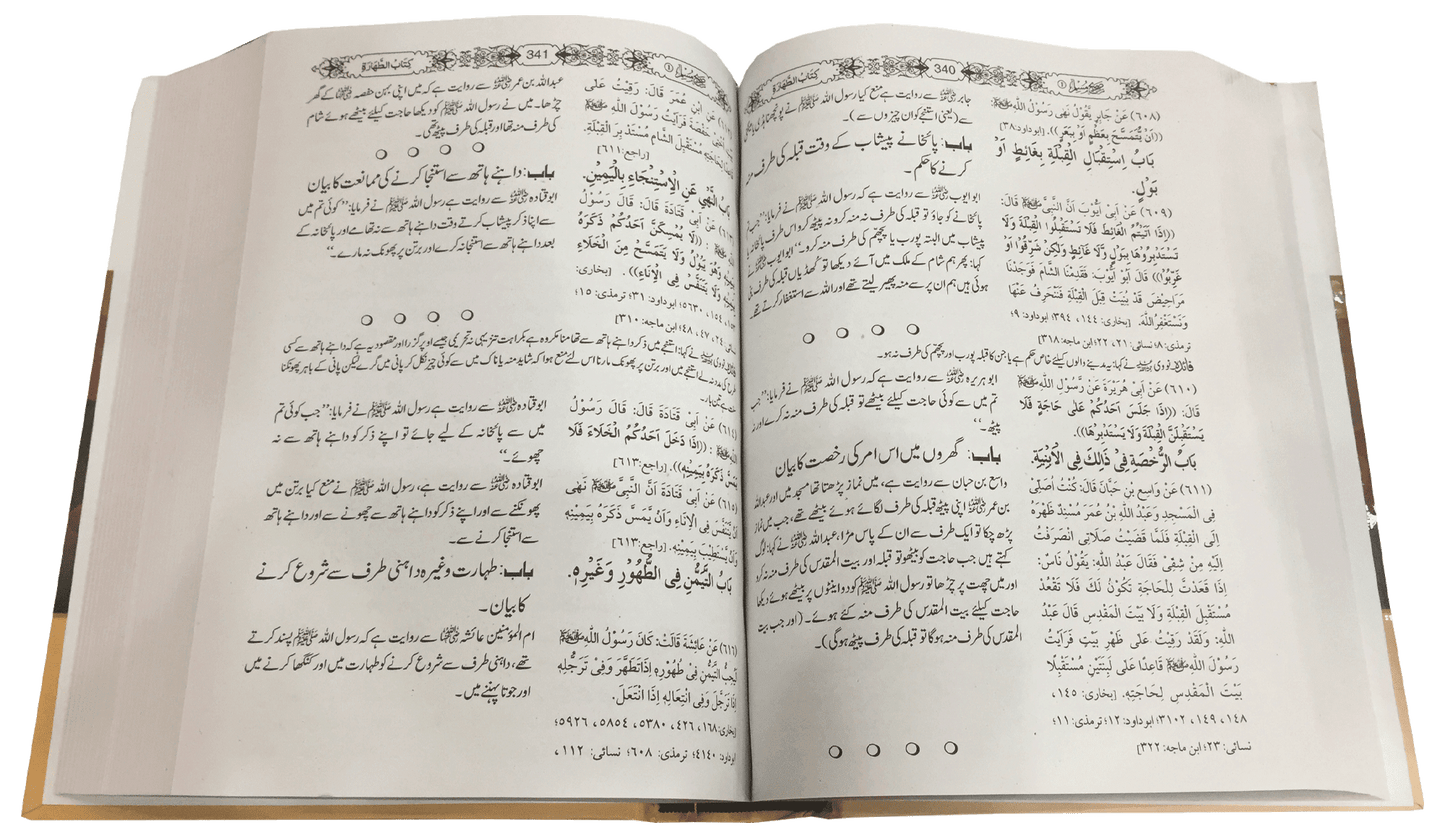 صحیح مسلم ① 340 کتاب الطہارة
(٦٠٨) عَنْ جَابِرٍ يَقُوْلُ نَهٰى رَسُوْلُ اللّٰهِ ﷺ
((اَنْ يُتَمَسَّحَ بِعَظْمٍ اَوْ بِبَعَرٍ)). [ابوداود:٣٨]
بَابُ اسْتِقْبَالِ الْقِبْلَةِ بِغَائِطٍ اَوْ
بَوْلٍ.
(٦٠٩) عَنْ اَبِيْ اَيُّوْبَ اَنَّ النَّبِيَّ ﷺ قَالَ:
((اِذَا اَتَيْتُمُ الْغَائِطَ فَلَا تَسْتَقْبِلُوا الْقِبْلَةَ وَلَا
تَسْتَدْبِرُوْهَا بِبَوْلٍ وَّلَا غَائِطٍ وَلٰكِنْ شَرِّقُوْا اَوْ
غَرِّبُوْا)) قَالَ اَبُوْ اَيُّوْبَ: فَقَدِمْنَا الشَّامَ فَوَجَدْنَا
مَرَاحِيْضَ قَدْ بُنِيَتْ قِبَلَ الْقِبْلَةِ فَنَنْحَرِفُ عَنْهَا
وَنَسْتَغْفِرُ اللّٰهَ. [بخاری: ١٤٤، ٣٩٤؛ ابوداود: ٩؛
ترمذی: ٨؛ نسائی: ٢١، ٢٢؛ ابن ماجہ: ٣١٨]
جابر رضی اللہ عنہ سے روایت ہے منع کیا رسول اللہ ﷺ نے پونچھنا ہڈی یا
سے (یعنی استنجے کو ان چیزوں سے)۔
باب: پائخانے پیشاب کے وقت قبلہ کی طرف منہ
کرنے کا حکم۔
ابو ایوب رضی اللہ عنہ سے روایت ہے کہ رسول اللہ ﷺ نے فرمایا: ’’جب تم
پائخانے کو جاؤ تو قبلہ کی طرف نہ منہ کرو نہ پیٹھ کرو اس طرف پائخانہ یا
پیشاب میں البتہ پورب یا پچھم کی طرف منہ کرو۔‘‘ ابو ایوب رضی اللہ عنہ نے
کہا: پھر ہم شام کے ملک میں آئے دیکھا تو کھڈیاں قبلہ کی طرف بنی
ہوئی ہیں ہم ان پر سے منہ پھیر لیتے تھے اور اللہ سے استغفار کرتے تھے۔
فائلا: نووی رحمہ اللہ نے کہا: یہ مدینے والوں کیلئے خاص حکم ہے یا جن کا قبلہ پورب اور پچھم کی طرف نہ ہو۔
(٦١٠) عَنْ اَبِيْ هُرَيْرَةَ عَنْ رَّسُوْلِ اللّٰهِ ﷺ
قَالَ: ((اِذَا جَلَسَ اَحَدُكُمْ عَلٰى حَاجَةٍ فَلَا
يَسْتَقْبِلَنَّ الْقِبْلَةَ وَلَا يَسْتَدْبِرْهَا)).
بَابُ الرُّخْصَةِ فِيْ ذَالِكَ فِي الْاَبْنِيَةِ.
(٦١١) عَنْ وَاسِعِ بْنِ حَبَّانَ قَالَ: كُنْتُ اُصَلِّيْ
فِي الْمَسْجِدِ وَعَبْدُ اللّٰهِ بْنُ عُمَرَ مُسْنِدٌ ظَهْرَهُ
اِلَى الْقِبْلَةِ فَلَمَّا قَضَيْتُ صَلَاتِيْ انْصَرَفْتُ
اِلَيْهِ مِنْ شِقِّيْ فَقَالَ عَبْدُ اللّٰهِ: يَقُوْلُ نَاسٌ:
اِذَا قَعَدْتَّ لِلْحَاجَةِ تَكُوْنُ لَكَ فَلَا تَقْعُدْ
مُسْتَقْبِلَ الْقِبْلَةِ وَلَا بَيْتَ الْمَقْدِسِ قَالَ عَبْدُ
اللّٰهِ: وَلَقَدْ رَقِيْتُ عَلٰى ظَهْرِ بَيْتٍ فَرَاَيْتُ
رَسُوْلَ اللّٰهِ ﷺ قَاعِدًا عَلٰى لَبِنَتَيْنِ مُسْتَقْبِلًا
بَيْتَ الْمَقْدِسِ لِحَاجَتِهِ. [بخاری: ١٤٥،
١٤٨، ١٤٩، ٣١٠٢؛ ابوداود: ١٢؛ ترمذی: ١١؛
نسائی: ٢٣؛ ابن ماجہ: ٣٢٢]
ابو ہریرہ رضی اللہ عنہ سے روایت ہے کہ رسول اللہ ﷺ نے فرمایا: ’’جب
تم میں سے کوئی حاجت کیلئے بیٹھے تو قبلہ کی طرف منہ نہ کرے اور نہ
پیٹھ۔‘‘
باب: گھروں میں اس امر کی رخصت کا بیان
واسع بن حبان سے روایت ہے، میں نماز پڑھتا تھا مسجد میں اور عبداللہ
بن عمر رضی اللہ عنہ اپنی پیٹھ قبلہ کی طرف لگائے ہوئے بیٹھے تھے، جب میں نماز
پڑھ چکا تو ایک طرف سے ان کے پاس مڑا، عبداللہ رضی اللہ عنہ نے کہا: لوگ
کہتے ہیں جب حاجت کو بیٹھو تو قبلہ اور بیت المقدس کی طرف منہ نہ کرو
اور میں چھت پر چڑھا تو رسول اللہ ﷺ کو دو اینٹوں پر بیٹھے ہوئے دیکھا
حاجت کیلئے بیت المقدس کی طرف منہ کئے ہوئے۔ (اور جب بیت
المقدس کی طرف منہ ہو گا تو قبلہ کی طرف پیٹھ ہو گی)۔
صحیح مسلم ① 341 کتاب الطہارة
عَنِ ابْنِ عُمَرَ قَالَ: رَقِيْتُ عَلٰى
حَفْصَةَ فَرَاَيْتُ رَسُوْلَ اللّٰهِ ﷺ
لِحَاجَتِهِ مُسْتَقْبِلَ الشَّامِ مُسْتَدْبِرَ الْقِبْلَةِ.
[راجع: ٦١١]
بَابُ النَّهْيِ عَنِ الْاِسْتِنْجَاءِ بِالْيَمِيْنِ.
عَنْ اَبِيْ قَتَادَةَ قَالَ: قَالَ رَسُوْلُ
((لَا يُمْسِكَنَّ اَحَدُكُمْ ذَكَرَهُ
وَهُوَ يَبُوْلُ وَلَا يَتَمَسَّحْ مِنَ الْخَلَاءِ
وَلَا يَتَنَفَّسْ فِي الْاِنَاءِ)). [بخاری:
١٥٤، ٥٦٣٠؛ ابوداود: ٣١؛ ترمذی: ١٥؛
٢٤، ٤٧، ٤٨؛ ابن ماجہ: ٣١٠]
عبداللہ بن عمر رضی اللہ عنہ سے روایت ہے کہ میں اپنی بہن حفصہ رضی اللہ عنہا کے گھر
چڑھا۔ میں نے رسول اللہ ﷺ کو دیکھا حاجت کیلئے بیٹھے ہوئے شام
کی طرف منہ تھا اور قبلہ کی طرف پیٹھ تھی۔
باب: داہنے ہاتھ سے استنجا کرنے کی ممانعت کا بیان
ابو قتادہ رضی اللہ عنہ سے روایت ہے رسول اللہ ﷺ نے فرمایا: ’’کوئی تم میں
سے اپنا ذکر پیشاب کرتے وقت داہنے ہاتھ سے نہ تھامے اور پائخانہ کے
بعد داہنے ہاتھ سے استنجا نہ کرے اور برتن پر پھونک نہ مارے۔‘‘
فائلا: نووی رحمہ اللہ نے کہا: استنجے میں ذکر داہنے ہاتھ سے تھامنا مکروہ ہے بکراہت تنزیہی نہ تحریمی جیسے اوپر گزرا اور مقصود یہ ہے کہ داہنے ہاتھ سے کسی
طرح کی مدد نہ لے استنجے میں اور برتن پر پھونک مارنا اس لئے منع ہوا کہ شاید منہ یا ناک میں سے کوئی چیز نکل کر پانی میں گرے لیکن پانی کے باہر پھونکنا
(٦١٤) عَنْ اَبِيْ قَتَادَةَ قَالَ: قَالَ رَسُوْلُ
((اِذَا دَخَلَ اَحَدُكُمُ الْخَلَاءَ فَلَا
يَمَسَّ ذَكَرَهُ بِيَمِيْنِهِ)). [راجع: ٦١٣]
(٦١٥) عَنْ اَبِيْ قَتَادَةَ اَنَّ النَّبِيَّ ﷺ نَهٰى
اَنْ يَّتَنَفَّسَ فِي الْاِنَاءِ وَاَنْ يَّمَسَّ ذَكَرَهُ بِيَمِيْنِهِ
وَاَنْ يَّسْتَطِيْبَ بِيَمِيْنِهِ. [راجع: ٦١٣]
بَابُ التَّيَمُّنِ فِي الطُّهُوْرِ وَغَيْرِهِ.
(٦١٦) عَنْ عَائِشَةَ قَالَتْ: كَانَ رَسُوْلُ اللّٰهِ ﷺ
لَيُحِبُّ التَّيَمُّنَ فِيْ طُهُوْرِهِ اِذَا تَطَهَّرَ وَفِيْ تَرَجُّلِهِ
اِذَا تَرَجَّلَ وَفِي انْتِعَالِهِ اِذَا انْتَعَلَ.
[بخاری: ١٦٨، ٤٢٦، ٥٣٨٠، ٥٨٥٤، ٥٩٢٦؛
ابوداود: ٤١٤٠؛ ترمذی: ٦٠٨؛ نسائی: ١١٢،
ابو قتادہ رضی اللہ عنہ سے روایت ہے رسول اللہ ﷺ نے فرمایا: ’’جب کوئی تم
میں سے پائخانہ کے لیے جائے تو اپنے ذکر کو داہنے ہاتھ سے نہ
چھوئے۔‘‘
ابو قتادہ رضی اللہ عنہ سے روایت ہے، رسول اللہ ﷺ نے منع کیا برتن میں
پھونکنے سے اور اپنے ذکر کو داہنے ہاتھ سے چھونے سے اور داہنے ہاتھ
سے استنجا کرنے سے۔
باب: طہارت وغیرہ داہنی طرف سے شروع کرنے
کا بیان۔
ام المؤمنین عائشہ رضی اللہ عنہا سے روایت ہے کہ رسول اللہ ﷺ پسند کرتے
تھے، داہنی طرف سے شروع کرنے کو طہارت میں اور کنگھا کرنے میں
اور جوتا پہننے میں۔